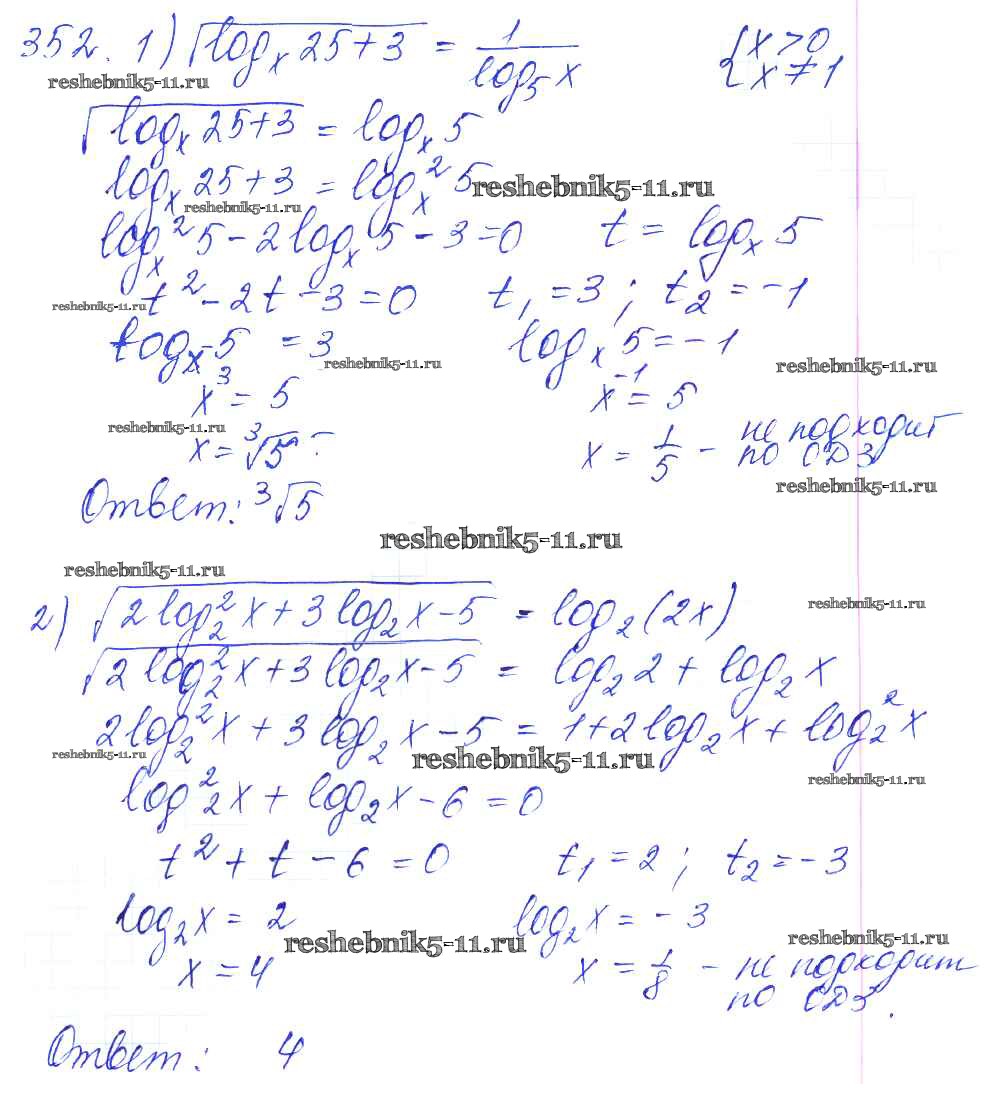 352. 1) √(log_x 25+3) = 1/(log_5 x) { x>0
x≠1
reshebnik5-11.ru
√(log_x 25+3) = log_x 5
log_x 25+3 = log_x² 5 reshebnik5-11.ru
reshebnik5-11.ru
log_x² 5 - 2 log_x 5 - 3 = 0 t = log_x 5
reshebnik5-11.ru t² - 2t - 3 = 0 t₁ = 3 ; t₂ = -1
log_x 5 = 3 log_x 5 = -1
reshebnik5-11.ru reshebnik5-11.ru
x³ = 5 x⁻¹ = 5
reshebnik5-11.ru
x = ³√5 x = 1/5 - не подходит
по ОДЗ
reshebnik5-11.ru
Ответ: ³√5
reshebnik5-11.ru
reshebnik5-11.ru
2) √(2 log₂² x + 3 log₂ x - 5) = log₂ (2x) reshebnik5-11.ru
√(2 log₂² x + 3 log₂ x - 5) = log₂ 2 + log₂ x
2 log₂² x + 3 log₂ x - 5 = 1 + 2 log₂ x + log₂² x
reshebnik5-11.ru reshebnik5-11.ru
reshebnik5-11.ru
log₂² x + log₂ x - 6 = 0
t² + t - 6 = 0 t₁ = 2 ; t₂ = -3
log₂ x = 2 log₂ x = -3
reshebnik5-11.ru reshebnik5-11.ru
x = 4 x = 1/8 - не подходит
по ОДЗ.
Ответ: 4